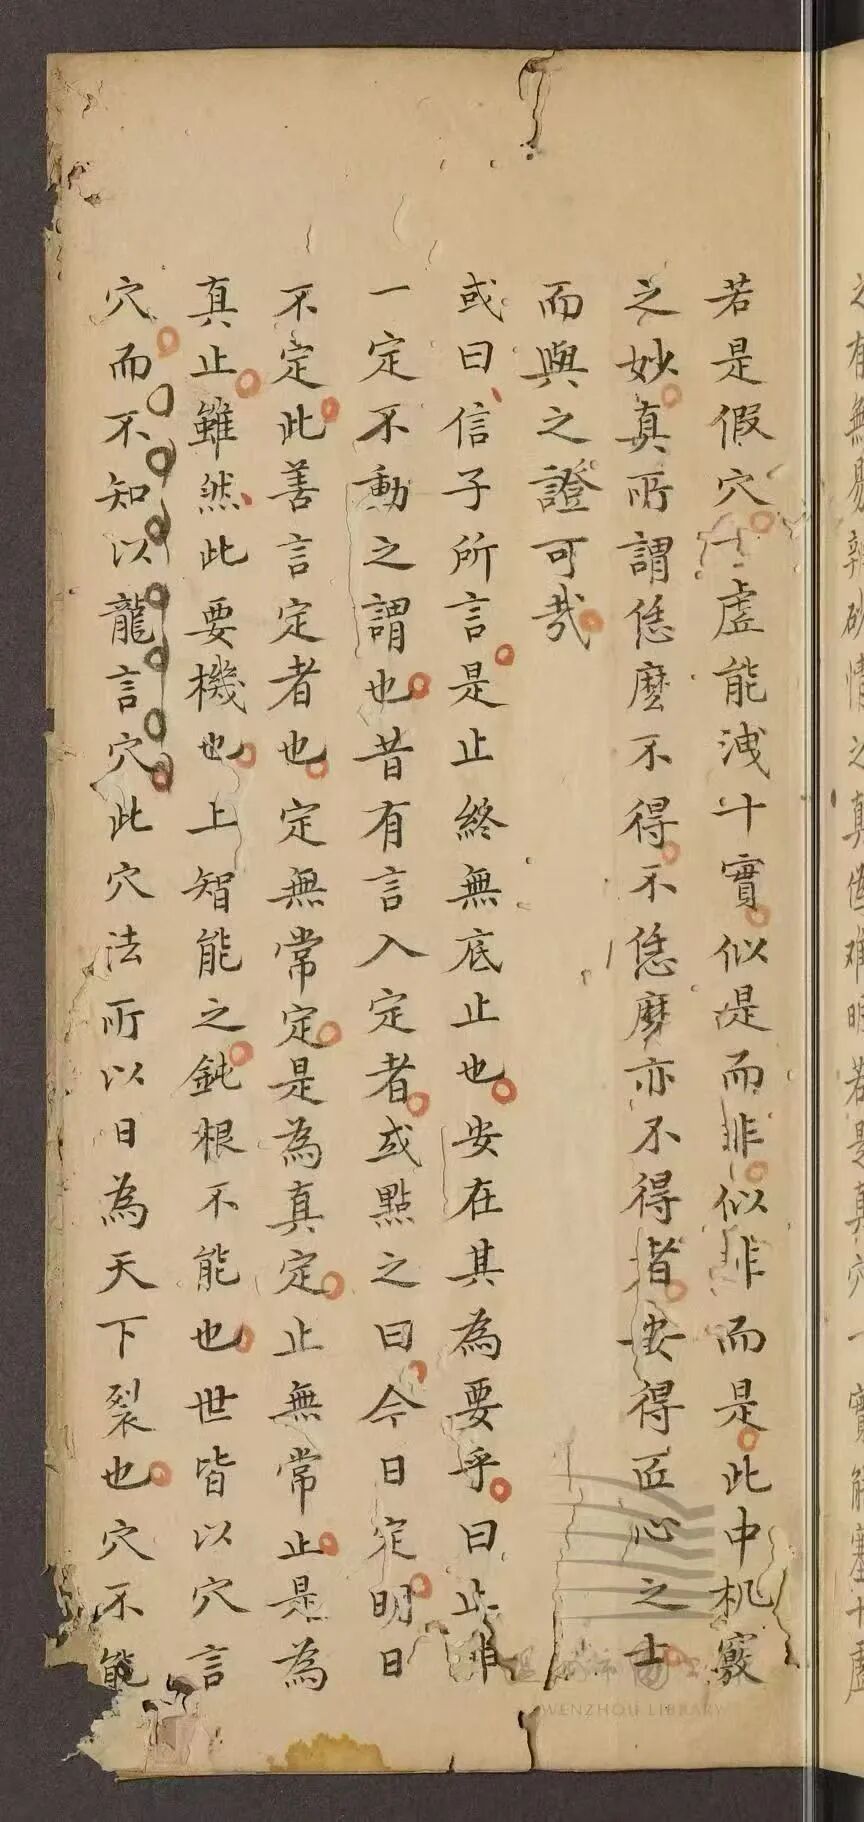 之有無易辨砂情之真僞难明若是真穴一實能塞十虛
若是假穴十虛能洩十實似是而非似非而是此中机竅
之妙真所謂恁麼不得不恁麼亦不得者安得匠心之士
而與之證可哉
或曰信子所言是止終無底止也安在其為要乎曰止非
一定不動之謂也昔有言入定者或點之曰今日定明日
不定此善言定者也定無常定是為真定止無常止是為
真止雖然此要機也上智能之鈍根不能也世皆以穴言
穴而不知以龍言穴此穴法所以日為天下裂也穴不能
WENZHOU LIBRARY